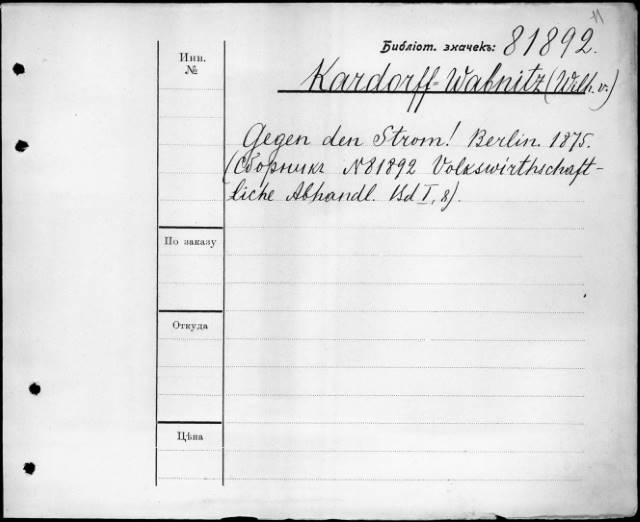 11
Библіот. значекъ: 81892.
Инв.
№
Kardorff-Wabnitz (Wilh. v.)
Gegen den Strom! Berlin. 1875.
(Сборникъ N81892 Volkswirthschaft-
liche Abhandl. Bd I, 8).
По заказу
Откуда
Цѣна